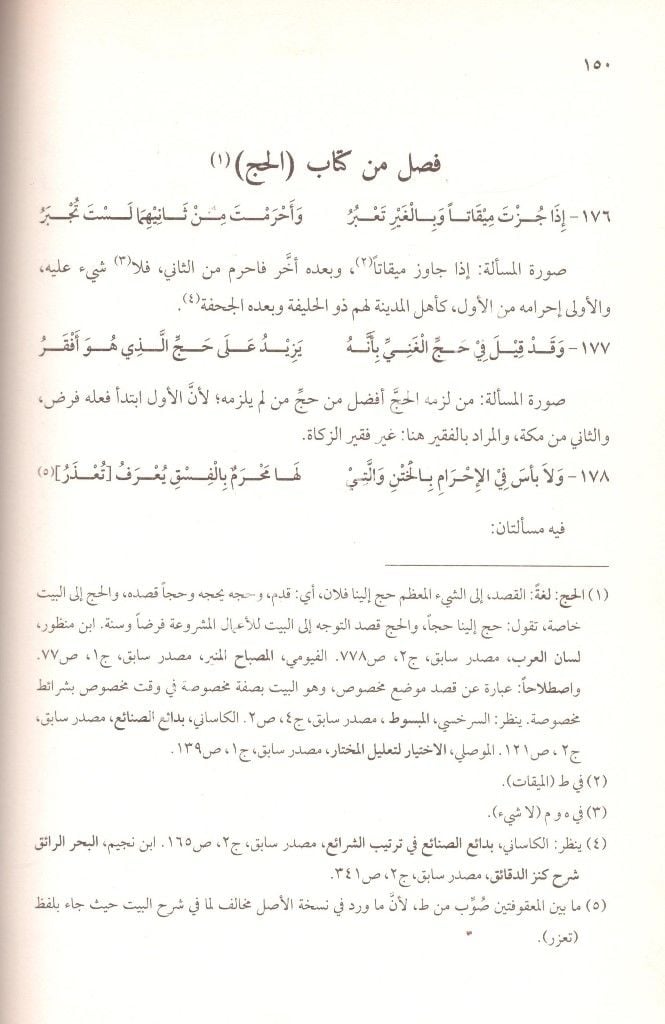 ١٥٠
فصل من كتاب (الحج)(١)
١٧٦- إِذَا جُزْتَ مِيْقَاتاً وَبِالْغَيْرِ تَعْبُرُ وَأَحْرَمْتَ مِنْ ثَانِيْهِمَا لَسْتَ تُجْبَرُ
صورة المسألة: إذا جاوز ميقاتاً(٢)، وبعده أخَّر فاحرم من الثاني، فلا(٣) شيء عليه،
والأولى إحرامه من الأول، كأهل المدينة لهم ذو الحليفة وبعده الجحفة(٤).
١٧٧- وَقَدْ قِيْلَ فِيْ حَجِّ الْغَنِيِّ بِأَنَّهُ يَزِيْدُ عَلَى حَجِّ الَّذِي هُوَ أَفْقَرُ
صورة المسألة: من لزمه الحجَّ أفضل من حجِّ من لم يلزمه؛ لأنَّ الأول ابتدأ فعله فرض،
والثاني من مكة، والمراد بالفقير هنا: غير فقير الزكاة.
١٧٨- وَلاَ بأسَ فِيْ الإِحْرَامِ بِالْخَتْنِ وَالَّتِيْ لَهَا مَحْرَمٌ بِالْفِسْقِ يُعْرَفُ [تُعْذَرُ](٥)
فيه مسألتان:
(١) الحج: لغةً: القصد، إلى الشيء المعظم حج إلينا فلان، أي: قدم، وحجه يحجه وحجاً قصده، والحج إلى البيت
خاصة، تقول: حج إلينا حجاً، والحج قصد التوجه إلى البيت للأعمال المشروعة فرضاً وسنة. ابن منظور،
لسان العرب، مصدر سابق، ج٢، ص٧٧٨. الفيومي، المصباح المنير، مصدر سابق، ج١، ص٧٧.
واصطلاحاً: عبارة عن قصد موضع مخصوص، وهو البيت بصفة مخصوصة في وقت مخصوص بشرائط
مخصوصة. ينظر: السرخسي، المبسوط، مصدر سابق، ج٤، ص٢. الكاساني، بدائع الصنائع، مصدر سابق،
ج٢، ص١٢١. الموصلي، الاختيار لتعليل المختار، مصدر سابق، ج١، ص١٣٩.
(٢) في ط (الميقات).
(٣) في ه و م (لا شيء).
(٤) ينظر: الكاساني، بدائع الصنائع في ترتيب الشرائع، مصدر سابق، ج٢، ص١٦٥. ابن نجيم، البحر الرائق
شرح كنز الدقائق، مصدر سابق، ج٢، ص٣٤١.
(٥) ما بين المعقوفتين صُوِّب من ط، لأنَّ ما ورد في نسخة الأصل مخالف لما في شرح البيت حيث جاء بلفظ
(تعزر).